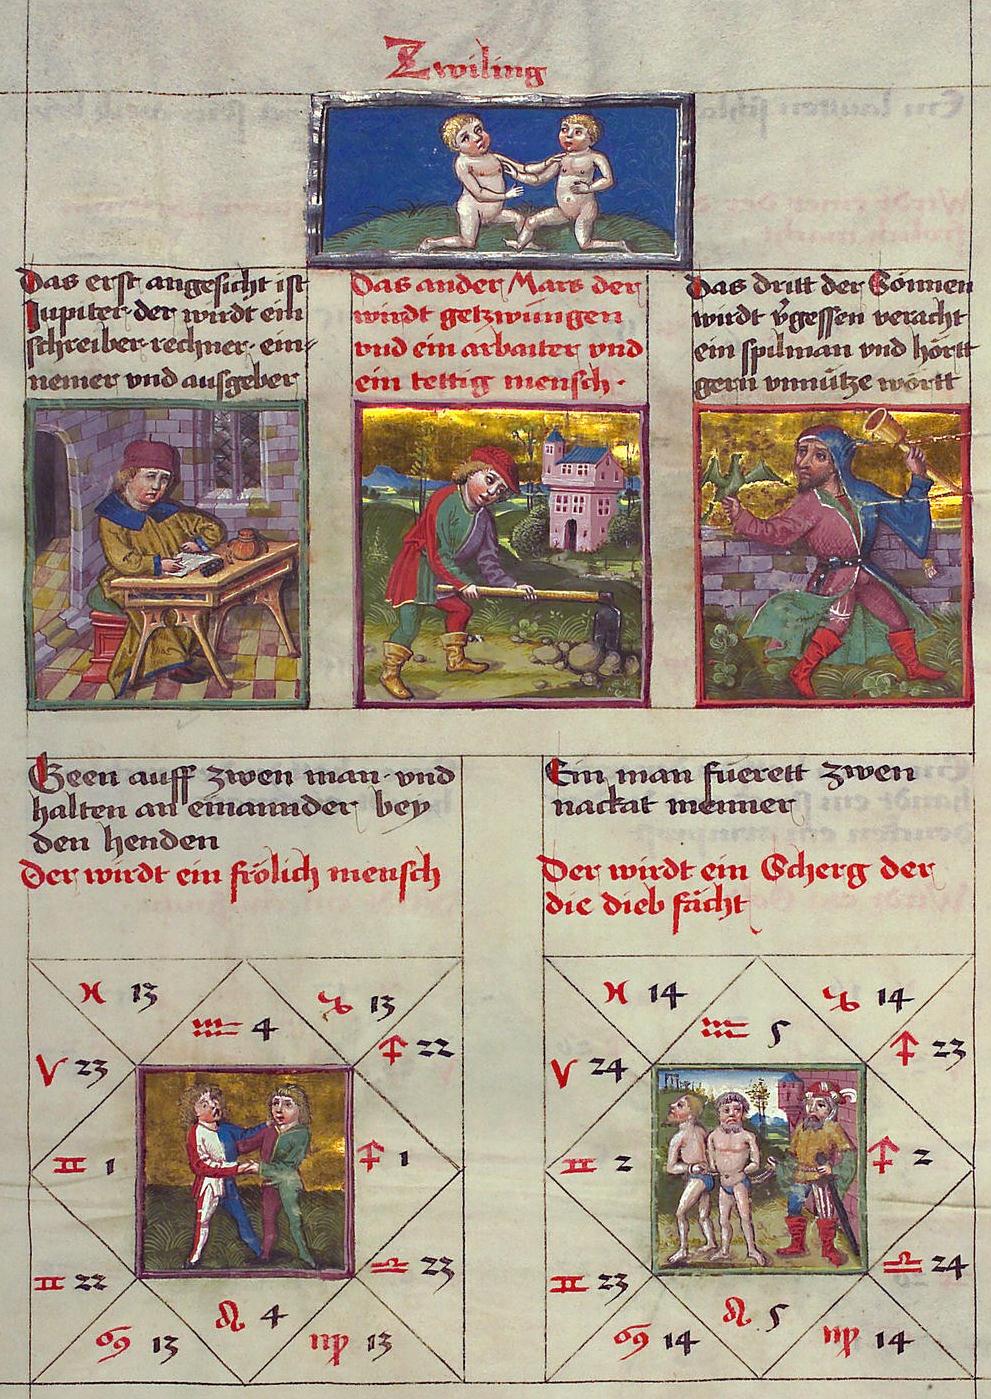 Zwiling
Das erst angesicht ist
Jupiter der wirdt ein
schreiber rechner ein-
nemer vnd ausgeber
Das ander Mars der
wirdt getzwungen
vnd ein arbaiter vnd
ein tettig mensch
Das dritt der Sonnen
wirdt v̈gessen veracht
ein spilman vnd hörtt
gern vnnütze wörtt
Geen auff zwen man vnd
halten an einannder bey
den henden
Der wirdt ein frölich mensch
♓ 13
♒ 4
♑ 13
♐ 22
♈ 23
♊ 1
♐ 1
♊ 22
♎ 23
♋ 13
♌ 4
♍ 13
Ein man füerett zwen
nackat menner
Der wirdt ein Scherg der
die dieb fächt
♓ 14
♒ 5
♑ 14
♐ 23
♈ 24
♊ 2
♐ 2
♊ 23
♎ 24
♋ 14
♌ 5
♍ 14